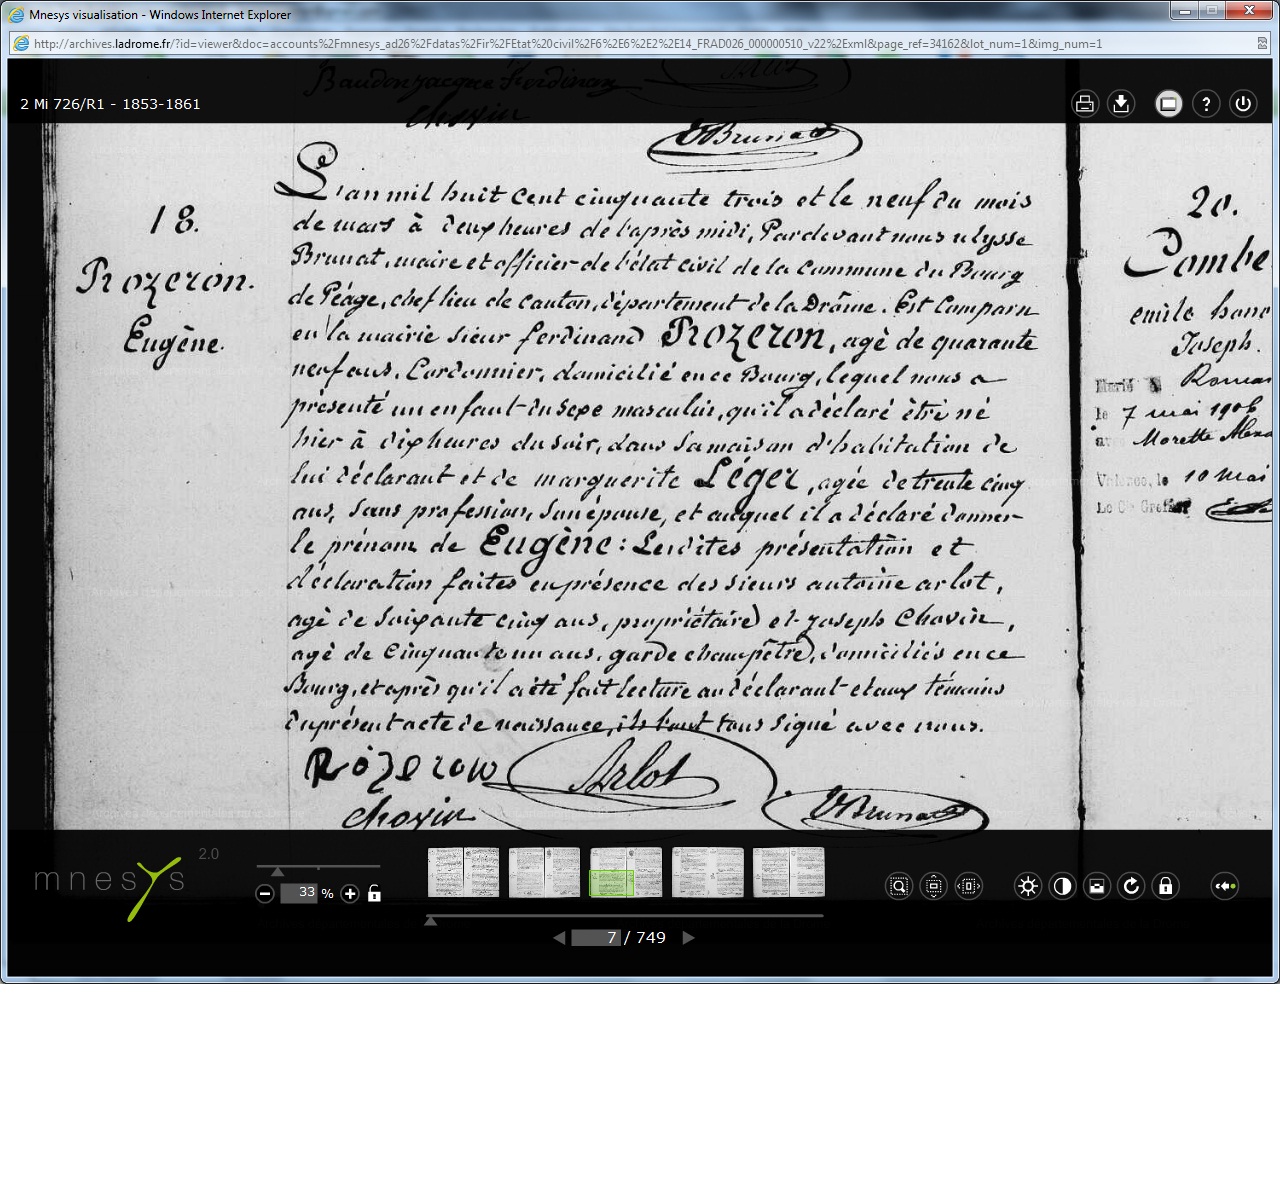 Mnesys visualisation - Windows Internet Explorer
http://archives.ladrome.fr/?id=viewer&doc=accounts%2Fmnesys_ad26%2Fdatas%2Fir%2FEtat%20civil%2F6%2E6%2E2%2E14_FRAD026_000000510_v22%2Exml&page_ref=34162&lot_num=1&img_num=1
2 Mi 726/R1 - 1853-1861
Baudon jacque Ferdinan
chovin
VBrunat
18.
Rozeron.
Eugène.
L'an mil huit cent cinquante trois et le neuf du mois
de mars à deux heures de l'après midi, Pardevant nous ulysse
Brunat, maire et officier de l'état civil de la commune du Bourg
de Péage, chef lieu de canton, département de la Drôme. Est Comparu
en la mairie sieur ferdinand Rozeron, agé de quarante
neuf ans, Cordonnier, domicilié en ce Bourg, lequel nous a
présenté un enfant du sexe masculin, qu'il a déclaré être né
hier à dix heures du soir, dans sa maison d'habitation de
lui déclarant et de marguerite Léger, agée de trente cinq
ans, sans profession, son épouse, et auquel il a déclaré donner
le prénom de Eugène: Lesdites présentation et
déclaration faites en présence des sieurs antoine arlot,
agé de soixante cinq ans, propriétaire et joseph Chovin,
agé de Cinquante un ans, garde champêtre, domiciliés en ce
Bourg, et après qu'il a été fait lecture au déclarant et aux témoins
du présent acte de naissance, ils l'ont tous signé avec nous.
Rozeron Arlot
chovin VBrunat
20.
Combe
emile hono
Joseph.
Marié à Roman
le 7 mai 1906
avec Morette Alexa
Valence, le 10 mai
Le Cis Greffier
mnesys 2.0
33 %
7 / 749